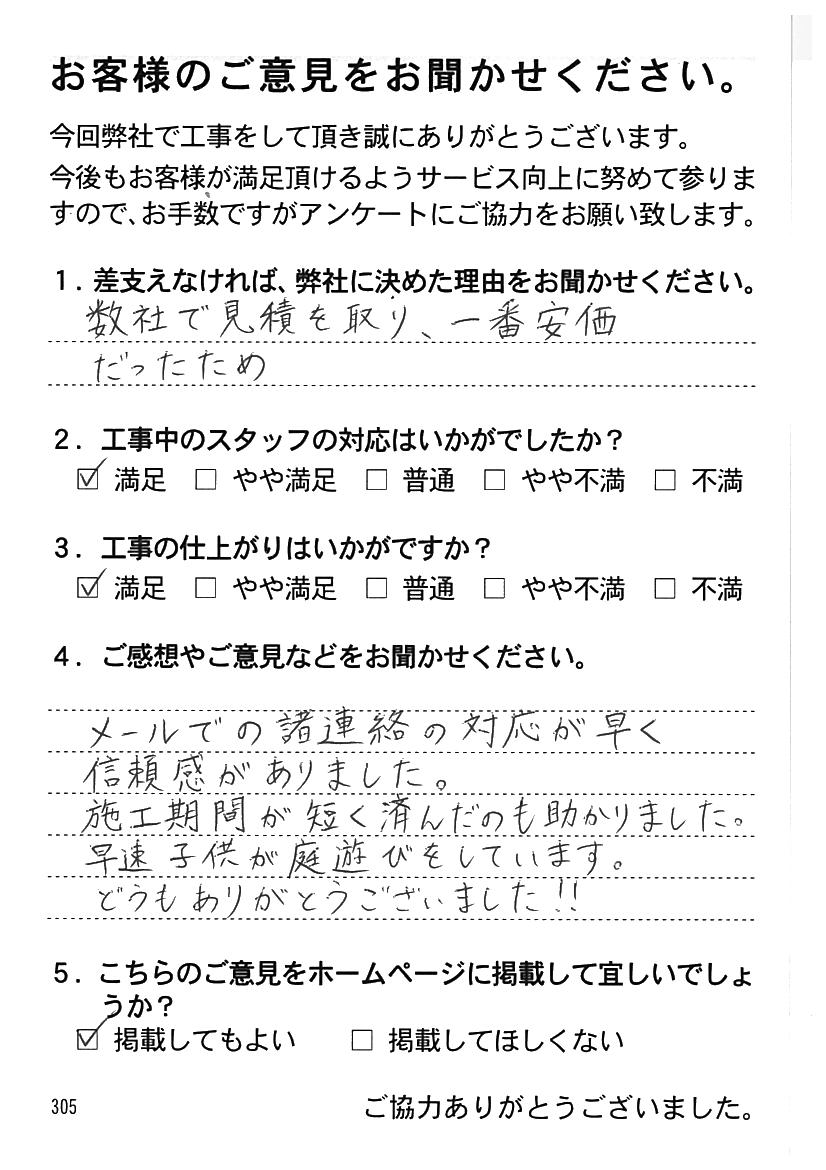 お客様のご意見をお聞かせください。
今回弊社で工事をして頂き誠にありがとうございます。
今後もお客様が満足頂けるようサービス向上に努めて参りま
すので、お手数ですがアンケートにご協力をお願い致します。
1．差支えなければ、弊社に決めた理由をお聞かせください。
数社で見積を取り、一番安価
だったため
2．工事中のスタッフの対応はいかがでしたか？
☑ 満足 □ やや満足 □ 普通 □ やや不満 □ 不満
3．工事の仕上がりはいかがですか？
☑ 満足 □ やや満足 □ 普通 □ やや不満 □ 不満
4．ご感想やご意見などをお聞かせください。
メールでの諸連絡の対応が早く
信頼感がありました。
施工期間が短く済んだのも助かりました。
早速子供が庭遊びをしています。
どうもありがとうございました!!
5．こちらのご意見をホームページに掲載して宜しいでしょ
うか？
☑ 掲載してもよい □ 掲載してほしくない
305 ご協力ありがとうございました。